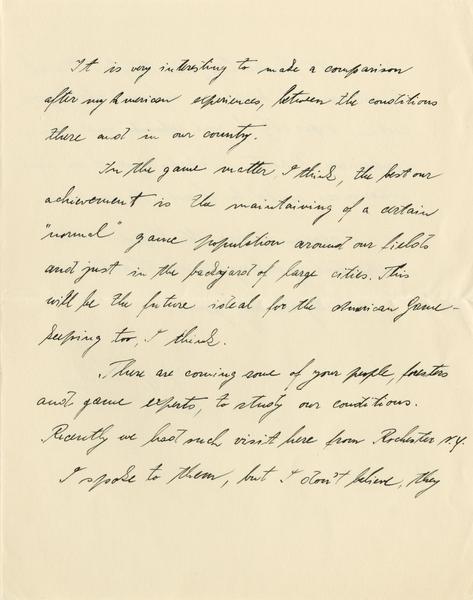 It is very interesting to make a comparison
after my American experiences, between the conditions
there and in our country.
In the game matter, I think, the best our
achievement is the maintaining of a certain
"normal" game population around our fields
and just in the backyard of large cities. This
will be the future ideal for the American Game-
keeping too, I think.
There are coming some of your people, foresters
and game experts, to study our conditions.
Recently we had such visit here from Rochester N.Y.
I spoke to them, but I don't believe, they